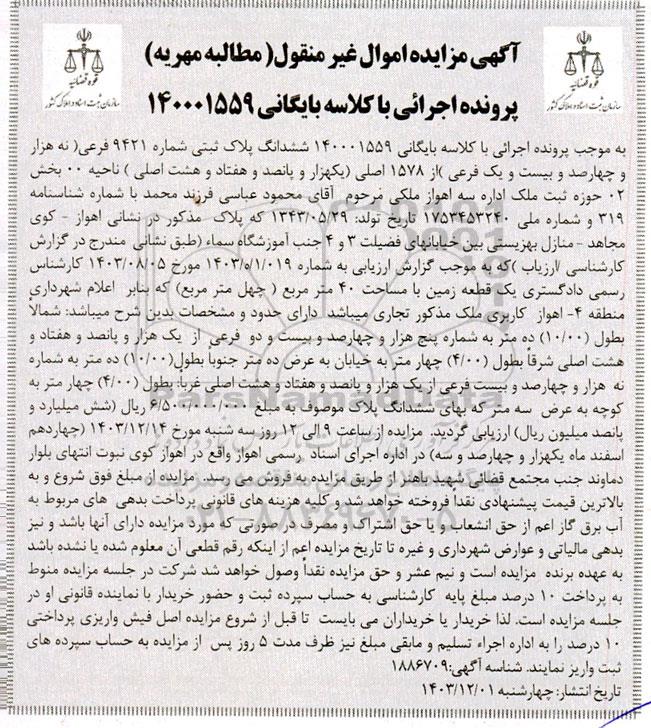 آگهی مزایده اموال غیر منقول( مطالبه مهریه)
پرونده اجرائی با کلاسه بایگانی ۱۴۰۰۰۱۵۵۹
قوه قضائیه
سازمان ثبت اسناد و املاک کشور
قوه قضائیه
سازمان ثبت اسناد و املاک کشور
به موجب پرونده اجرائی با کلاسه بایگانی ۱۴۰۰۰۱۵۵۹ ششدانگ پلاک ثبتی شماره ۹۴۲۱ فرعی( نه هزار
و چهارصد و بیست و یک فرعی )از ۱۵۷۸ اصلی (یکهزار و پانصد و هفتاد و هشت اصلی ) ناحیه ۰۰ بخش
۰۲ حوزه ثبت ملک اداره سه اهواز ملکی مرحوم آقای محمود عباسی فرزند محمد با شماره شناسنامه
۳۱۹ و شماره ملی ۱۷۵۳۴۵۳۲۴۰ تاریخ تولد: ۱۳۴۳/۰۵/۲۹ که پلاک مذکور در نشانی اهواز - کوی
مجاهد -منازل بهزیستی بین خیابانهای فضیلت ۳ و ۴ جنب آموزشگاه سماء (طبق نشانی مندرج در گزارش
کارشناسی /ارزیاب )که به موجب گزارش ارزیابی به شماره ۱۴۰۳/۵/۱/۰۱۹ مورخ ۱۴۰۳/۰۸/۰۵ کارشناس
رسمی دادگستری یک قطعه زمین با مساحت ۴۰ متر مربع ( چهل متر مربع) که بنابر اعلام شهرداری
منطقه ۴- اهواز کاربری ملک مذکور تجاری میباشد دارای حدود و مشخصات بدین شرح میباشد: شمالاً
بطول (۱۰/۰۰) ده متر به شماره پنج هزار و چهارصد و بیست و دو فرعی از یک هزار و پانصد و هفتاد و
هشت اصلی شرقاً بطول (۴/۰۰) چهار متر به خیابان به عرض ده متر جنوبا بطول(۱۰/۰۰) ده متر به شماره
نه هزار و چهارصد و بیست فرعی از یک هزار و پانصد و هفتاد و هشت اصلی غربا: بطول (۴/۰۰) چهار متر به
کوچه به عرض سه متر که بهای ششدانگ پلاک موصوف به مبلغ ۶/۵۰۰/۰۰۰/۰۰۰ ریال (شش میلیارد و
پانصد میلیون ریال) ارزیابی گردید. مزایده از ساعت ۹ الی ۱۲ روز سه شنبه مورخ ۱۴۰۳/۱۲/۱۴ (چهاردهم
اسفند ماه یکهزار و چهارصد و سه) در اداره اجرای اسناد رسمی اهواز واقع در اهواز کوی نبوت انتهای بلوار
دماوند جنب مجتمع قضائی شهید باهنر از طریق مزایده به فروش می رسد. مزایده از مبلغ فوق شروع و به
بالاترین قیمت پیشنهادی نقداً فروخته خواهد شد و کلیه هزینه های قانونی پرداخت بدهی های مربوط به
آب برق گاز اعم از حق انشعاب و یا حق اشتراک و مصرف در صورتی که مورد مزایده دارای آنها باشد و نیز
بدهی مالیاتی و عوارض شهرداری و غیره تا تاریخ مزایده اعم از اینکه رقم قطعی آن معلوم شده یا نشده باشد
به عهده برنده مزایده است و نیم عشر و حق مزایده نقداً وصول خواهد شد شرکت در جلسه مزایده منوط
به پرداخت ۱۰ درصد مبلغ پایه کارشناسی به حساب سپرده ثبت و حضور خریدار یا نماینده قانونی او در
جلسه مزایده است. لذا خریدار یا خریداران می بایست تا قبل از شروع مزایده اصل فیش واریزی پرداختی
۱۰ درصد را به اداره اجراء تسلیم و مابقی مبلغ نیز ظرف مدت ۵ روز پس از مزایده به حساب سپرده های
ثبت واریز نمایند. شناسه آگهی:۱۸۸۶۷۰۹
تاریخ انتشار: چهارشنبه ۱۴۰۳/۱۲/۰۱
ParsNamadData